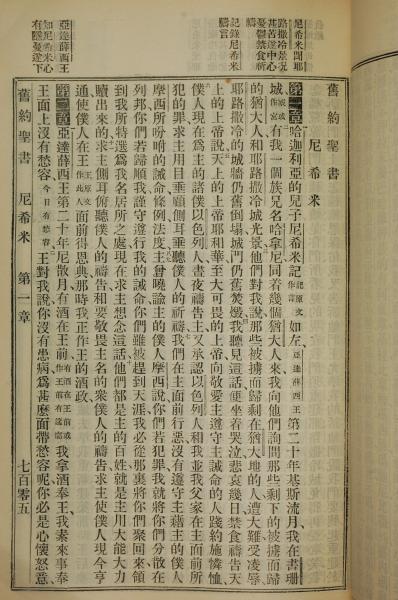 尼希米聞耶
路撒冷景況
甚苦遂中心
憂鬱禁食祈
禱言
記錄尼希米
亞達薛西王
知尼希米心
有隱憂遂下
舊約聖書
尼希米
第一章哈迦利亞的兒子尼希米記記原文作言如左亞達薛西王第二十年基斯流月我在書珊
城城或作宮有我一個族兄名哈拿尼同着幾個猶大人來我向他們詢問那些剩下的被擄而歸
的猶大人和耶路撒冷城光景他們對我說那些被擄而歸剩在猶大地的人遭大難受凌辱
耶路撒冷的城牆仍舊倒塌城門仍舊焚燬我聽見這話便坐着哭泣悲哀幾日禁食禱告天
上的上帝說天上的上帝耶和華至大可畏的上帝向敬愛主遵守主誡命的人踐約施憐恤
僕人現在爲主的諸僕以色列人晝夜禱告主又承認以色列人和我並我父家在主面前所
犯的罪求主用目垂顧側耳垂聽僕人的祈禱我們在主面前行惡沒有遵守主藉主的僕人
摩西所吩咐的誡命條例法度主曾曉諭主的僕人摩西說你們若犯罪我就將你們分散在
列邦你們若歸順我謹守遵行我的誡命你們雖被趕到天涯我必從那裏將你們聚回來領
到我所特選爲我名居所之處現在求主想念這話他們都是主的百姓就是主用大能大力
贖出來的求主側耳俯聽僕人的禱告和要敬畏主名的衆僕人的禱告求主使僕人現今亨
通使僕人在王王原文作此人面前得恩典那時我正作王的酒政
第二章亞達薛西王第二十年尼散月有酒在王前我拿酒奉王我素來事奉
王面上沒有愁容今日有愁容王對我說你沒有患病爲甚麼面帶愁容呢你必是心懷怒意
舊約聖書 尼希米 第一章 七百零五